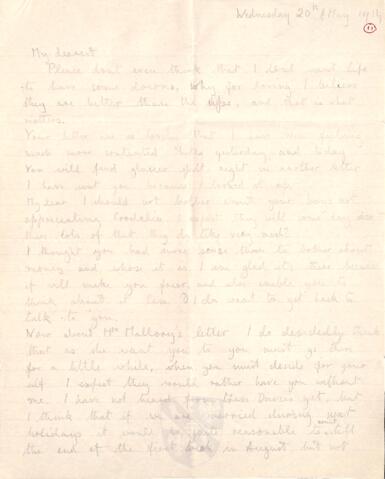 Wednesday 20th of May 1914
My dearest
Please dont even think that I dont want life
to have some downs, why for loving I believe
they are better than the ups, and that is what
matters.
Your letter is so that I have been feeling
much more contented yesterday, and today
You will find glacier spelt right in another letter
I have sent you because I looked it up.
My dear I should not bother about your boys not
appreciating I expect they will some day like
there lots of that they do like very much?
I thought you had more sense than to bother about
money and whose it is. I am glad its there because
it will make you freer, and also enable you to
think about it less. I do want to get back to
talk to you.
Now about Mrs Mallory's letter I do decidedly think
that as she want you to you must go there
for a little while, when you must decide for your
self. I expect they would rather have you without
me. I have not heard from these Davies yet, but
I think that if we are married during your
holidays it would be quite reasonable to wait till
the end of the first week in August but not